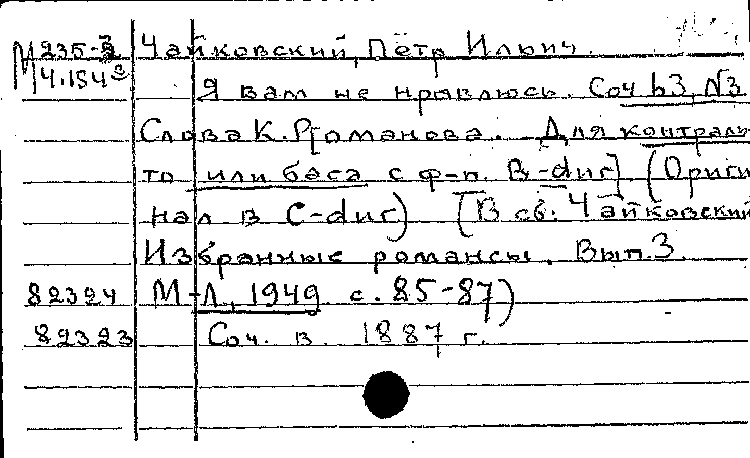 М235-3 Чайковский, Пётр Ильич.
М4.154
Я вам не нравлюсь. Соч 63, N3
Слова К. Р[романова. Для контраль
то или баса с ф-п. B-dur] (Ориги
нал в C-dur) [В сб. Чайковский
Избранные романсы. Вып. 3.
82324 М-Л, 1949 с. 85-87)
82323 Соч. в. 1887 г.